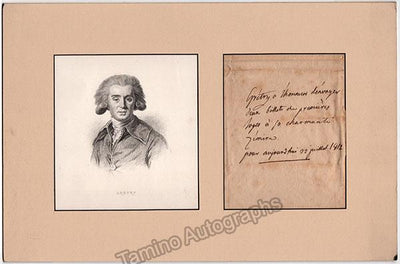 GRETRY
Grétry a l'honneur d'envoyer
deux billets de premières
loges à sa charmante
pour aujourdhui 22 juillet 1812
Tamino Autographs